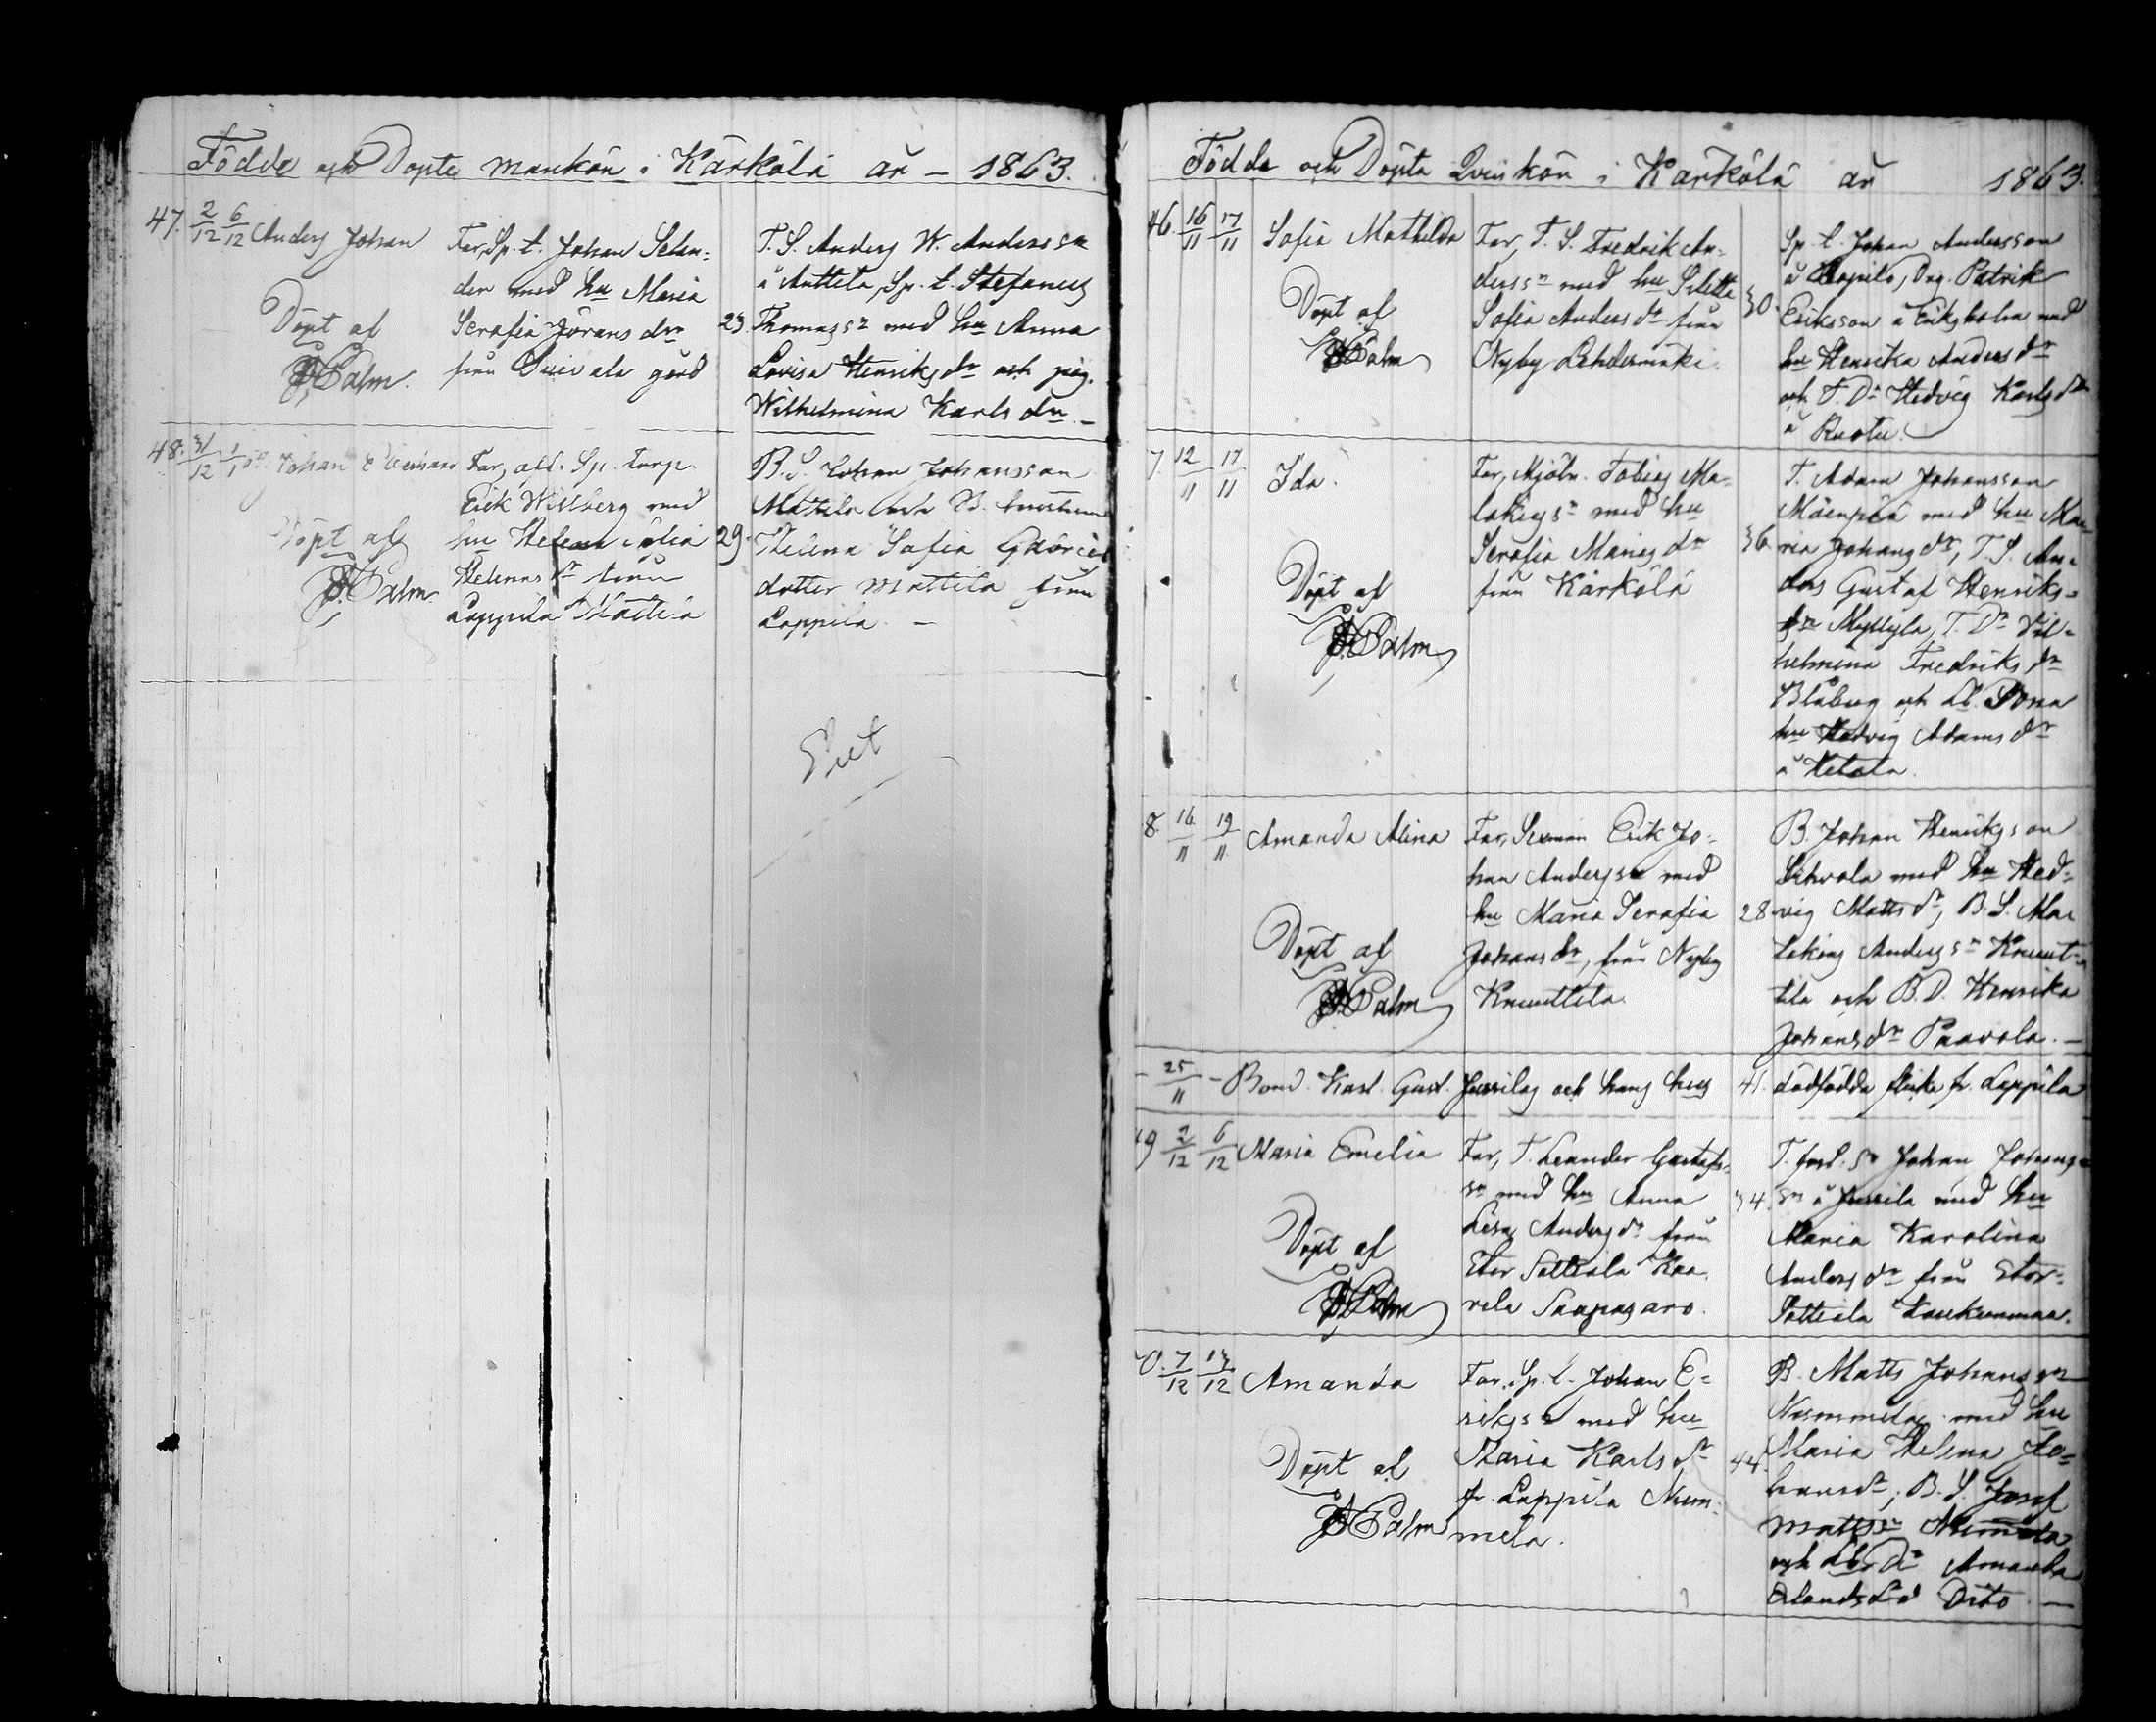 Födde och Döpte mankön i Kärkölä år – 1863.
47. 2/12 6/12 Anders Johan
Döpt af
Palm.
Far, Sp. t. Johan Selan-
der med hu Maria
Serafia Jörans dr
från Huivala gård
23.
T. S. Anders W. Andersson
å Anttila, Sp. t. Stefanus
Thomass n med hu Anna
Lovisa Henriks dr och pig.
Wilhelmina Karls dr. –
48. 31/12 1/1 Johan
Döpt af
Palm.
Far, afl. Sp. torp.
Erik Willberg med
hu Helena Sofia
Helenas dr från
Lappila Mattila
29.
B. S. Johan Johansson
Mattila och B. hustrun
Helena Sofia
dotter Mattila från
Lappila. –
Födde och Döpta Qvinkön i Kärkölä år 1863.
46. 16/11 17/11 Sofia Mathilda
Döpt af
Palm
Far, T. S. Fredrik An-
derss n med hu
Sofia Anders dr från
Nyby
30.
Sp. t. Johan Andersson
å Lapila, Drg. Patrik
Eriksson å Eriksholm med
hu Henrika Anders dr
och T. Dr Hedvig Karls dr
å Ruotu.
7. 12/11 17/11 Ida.
Döpt af
Palm
Far, Mjöln. Tobias Ma-
lakias n med hu
Serafia Marias dr
från Kärkölä
36.
T. Adam Johansson
Mäenpää med hu Ma-
ria Johans dr, T. S. An-
ders Gustaf Henriks-
sn Myllylä, T. Dr Vil-
helmina Fredriks dr
Blåberg och
hu Hedvig Adams dr
å Hetala.
8. 16/11 19/11 Amanda Alina
Döpt af
Palm
Far, Sexman Erik Jo-
han Anderss n med
hu Maria Serafia
Johans dr, från Nyby
Knuuttila.
28.
B. Johan Henriksson
Sihvola med hu Hed-
vig Matts dr, B. S. Ma-
lakias Anders sn Knuut-
tila och B. D. Henrika
Johans dr Paavola. –
– 25/11 – Bond. Karl Gust. Jussilas och hans hus 41. dödfödda flicka fr. Lappila
49 2/12 6/12 Maria Emelia
Döpt af
Palm
Far, T. Leander Gustafs-
sn med hu Anna
Lisa Anders dr från
Stor Sattiala Kaa-
rela Saapasaro.
34.
T. Johan Johans-
sn å Jussila med hu
Maria Karolina
Anders dr från Stor-
Sattiala Kaukunmaa.
0. 7/12 13/12 Amanda
Döpt af
Palm
Far, Sp. t. Johan E-
rikss n med hu
Maria Karls dr
fr. Lappila Num-
mela.
44.
B. Matts Johansson
Nummela med hu
Maria Helena Jo-
hans dr, B. S. Josef
Mattss n Nummela
och Amanda
Dito –